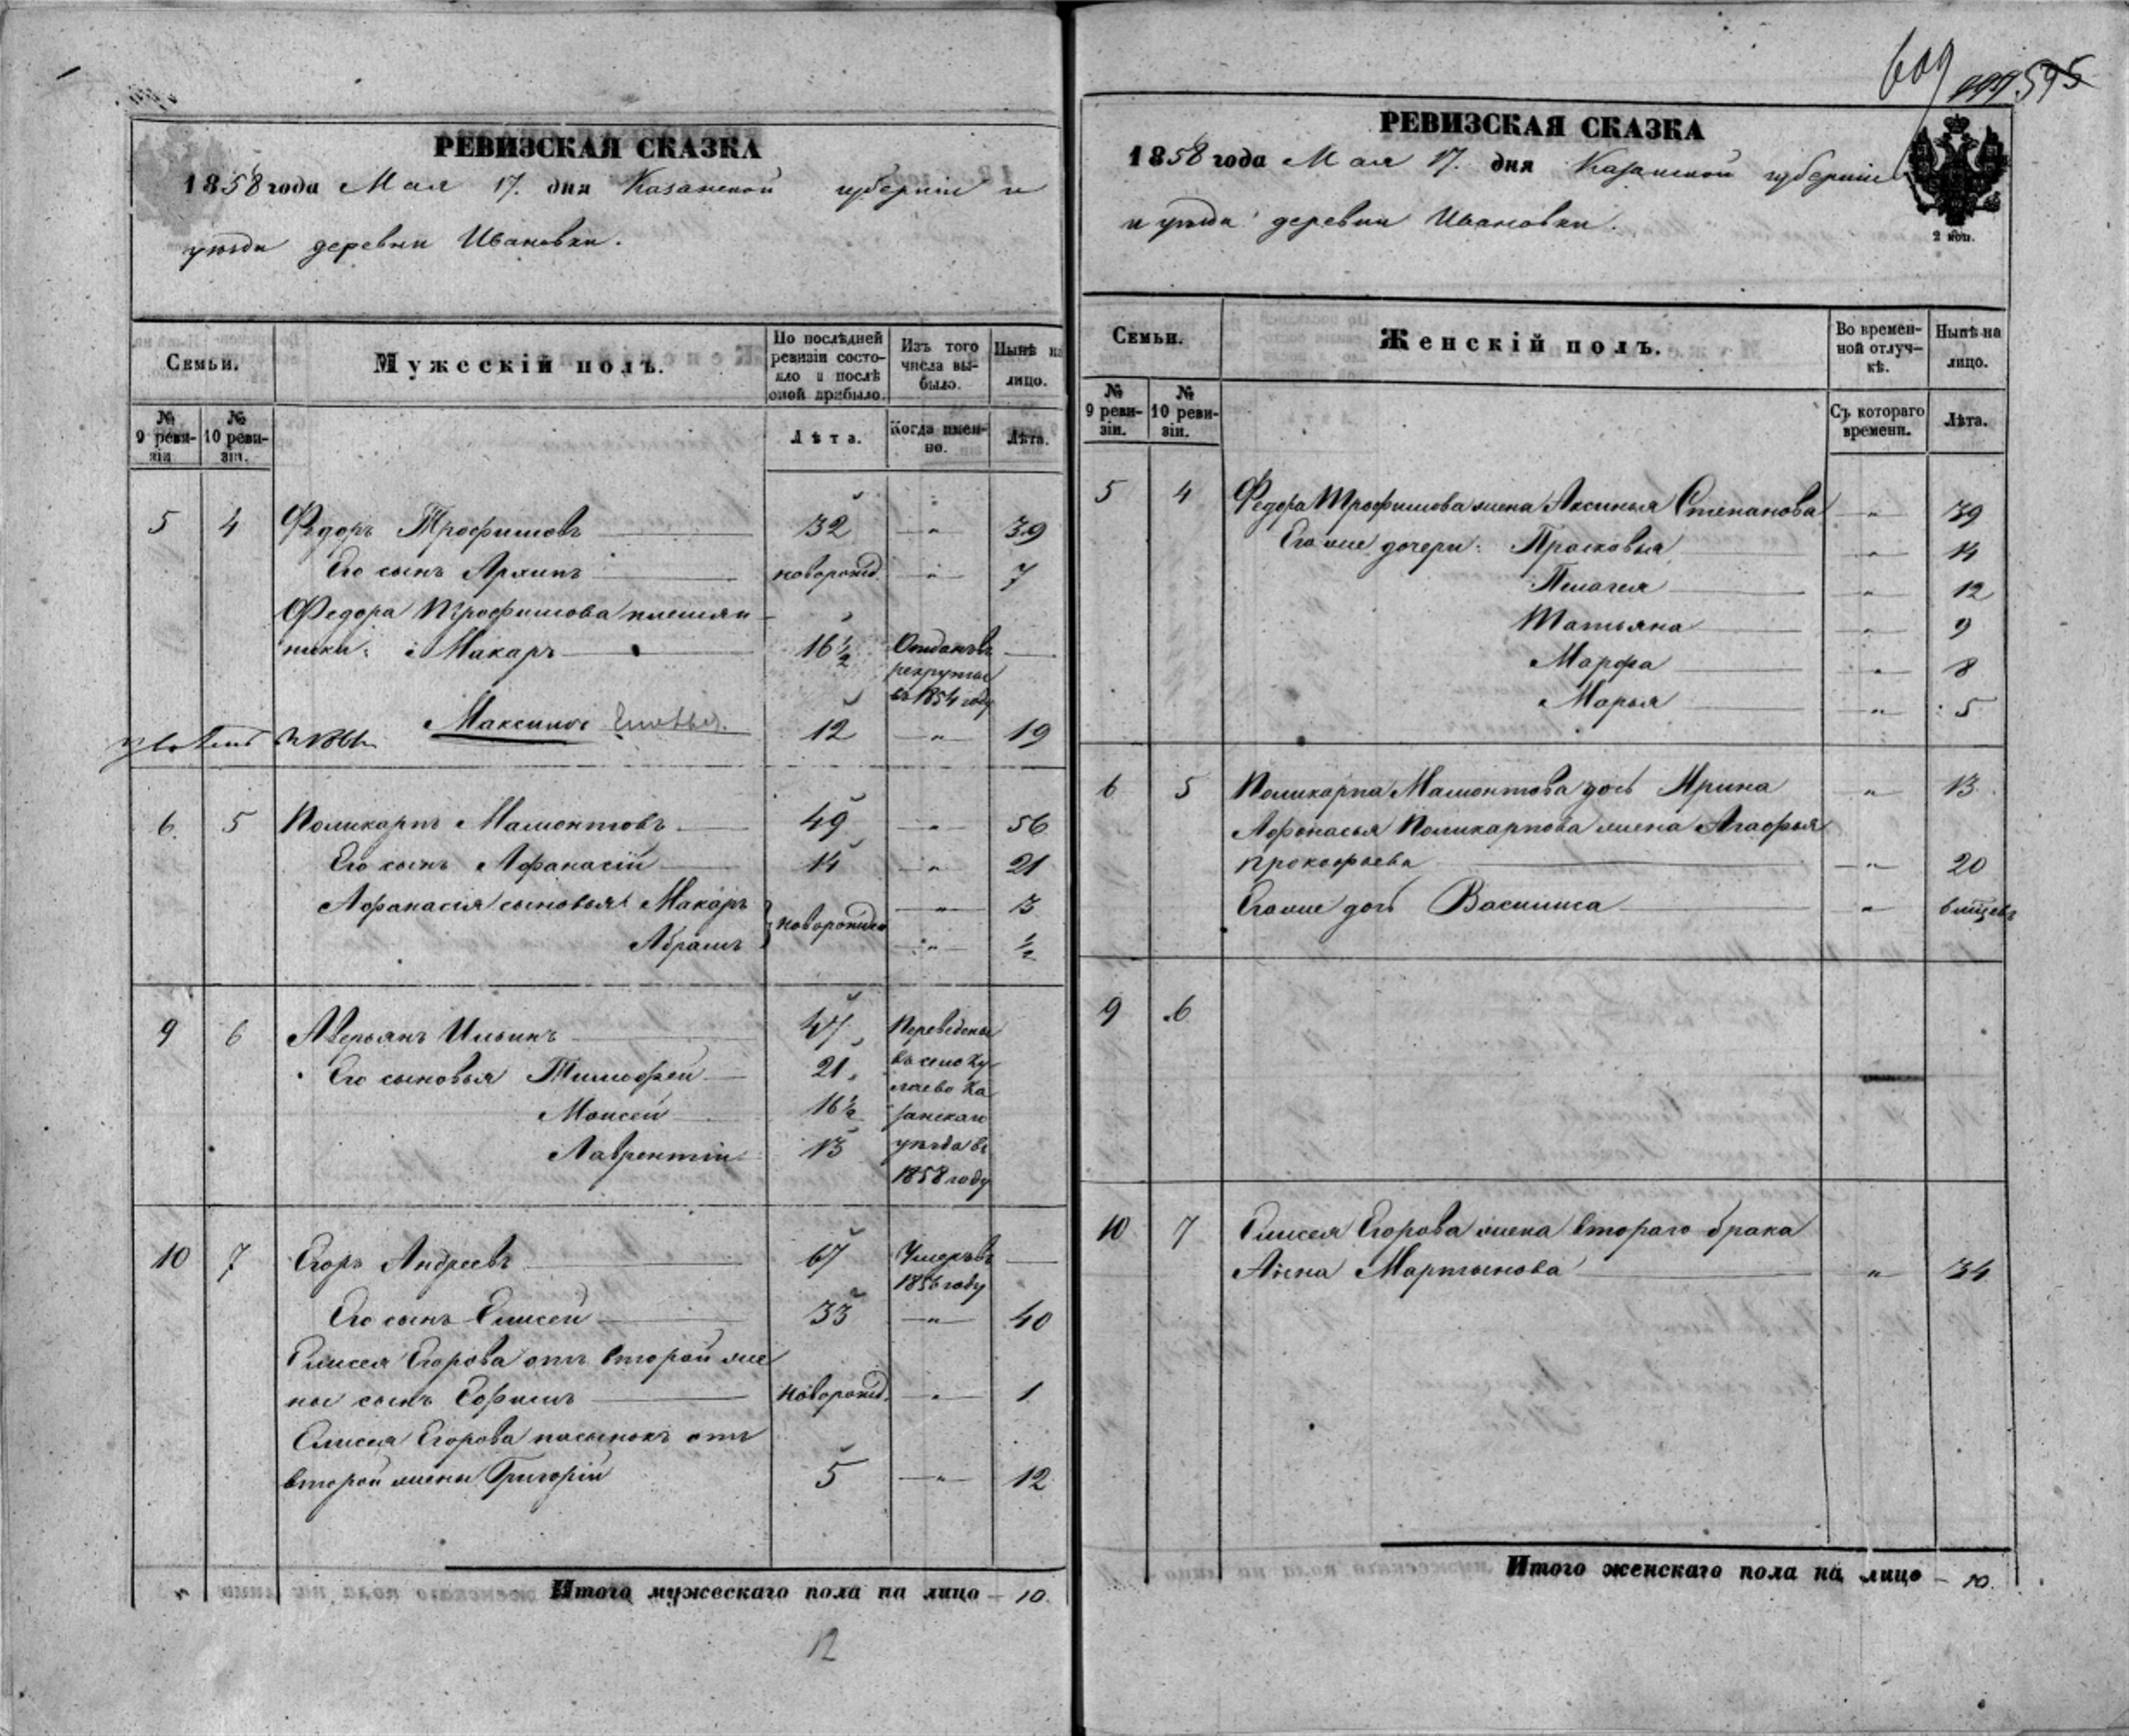 РЕВИЗСКАЯ СКАЗКА
1858 года Мая 17. дня Казанской губерніи и
уезда деревни Ивановки.
Семьи.
Мужескій полъ.
По послѣдней ревизіи состояло и послѣ оной прибыло.
Изъ того числа выбыло.
Нынѣ на лицо.
№ 9 ревизіи
№ 10 ревизіи.
Лѣта.
Когда именно.
Лѣта.
5 4 Федоръ Трофимовъ 32 " 39
Его сынъ Архипъ новорожд. " 7
Федора Трофимова племян
ники: Макаръ 16 ½ Отданъ въ
рекруты
въ 1854 году
Максимъ 12 " 19
6. 5 Поликарпъ Мамонтовъ 49 " 56
Его сынъ Афанасій 14 " 21
Афанасія сыновья Макаръ новорожден " 3
Абрамъ " ½
9 6 Аверьянъ Ильинъ 47 Переведены
Его сыновья Тимофей 21 въ село Ку
лаево Ка
Моисей 16 ½ занскаго
Лаврентій 13 уѣзда въ
1858 году
10 7 Егоръ Андреевъ 67 Умеръ въ
1856 году
Его сынъ Елисей 33 " 40
Елисея Егорова отъ второй же
ны сынъ Ефимъ новорожд. " 1
Елисея Егорова пасынокъ отъ
второй жены Григорій 5 " 12
Итого мужескаго пола на лицо 10.
12
609 595
РЕВИЗСКАЯ СКАЗКА
1858 года Мая 17. дня Казанской губерніи
и уезда деревни Ивановки.
2 коп.
Семьи.
Женскій полъ.
Во временной отлучкѣ.
Нынѣ на лицо.
№ 9 ревизіи.
№ 10 ревизіи.
Съ котораго времени.
Лѣта.
5 4 Федора Трофимова жена Аксинья Степанова " 39
Его же дочери: Прасковья " 14
Пелагея " 12
Татьяна " 9
Марфа " 8
Марья " 5
6 5 Поликарпа Мамонтова дочь Ирина " 13
Афонасья Поликарпова жена Агафья
Прокофьева " 20
Его же дочь Василиса "
9 6
10 7 Елисея Егорова жена втораго брака
Анна Мартынова " 34
Итого женскаго пола на лицо 10.